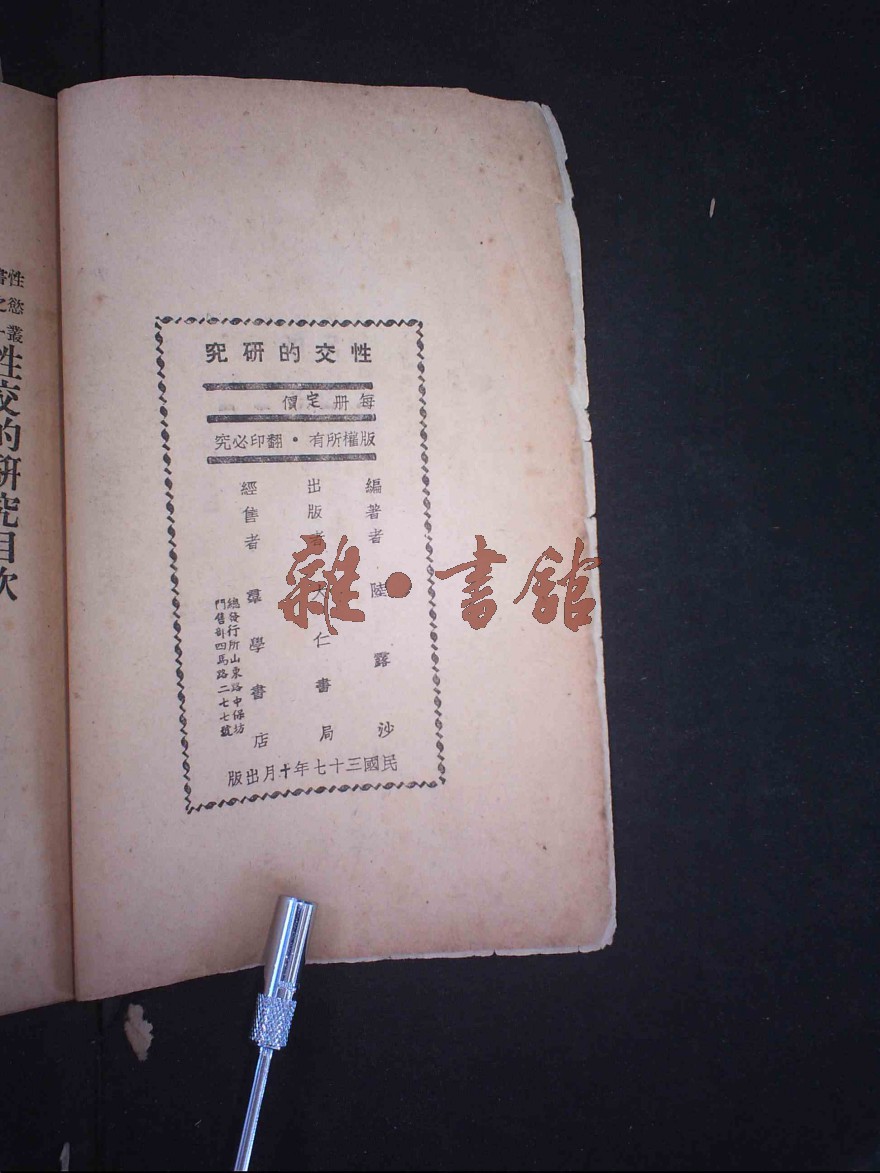 性交的研究
每册定價
版權所有・翻印必究
編著者 陸露沙
出版者 大仁書局
經售者 羣學書店
總發行所山東路中保坊
門售部四馬路二七七號
民國三十七年十月出版
性慾叢
書之一
性交的研究目次
雜・書館